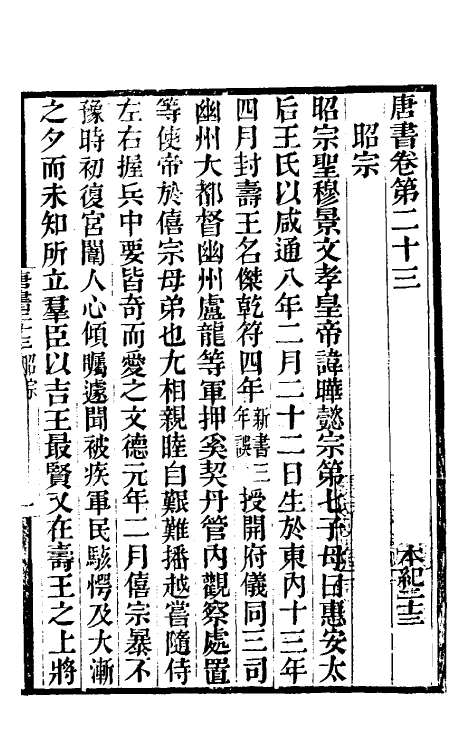 唐書卷第二十三
本紀二十三
昭宗
昭宗聖穆景文孝皇帝諱曄懿宗第七子母曰惠安太
后王氏以咸通八年二月二十二日生於東內十三年
四月封壽王名傑乾符四年新書三年誤授開府儀同三司
幽州大都督幽州盧龍等軍押奚契丹管內觀察處置
等使帝於僖宗母弟也尤相親睦自艱難播越嘗隨侍
左右握兵中要皆奇而愛之文德元年二月僖宗暴不
豫時初復宮闈人心傾矚遽聞被疾軍民駭愕及大漸
之夕而未知所立羣臣以吉王最賢又在壽王之上將
唐書二十三 昭宗
一